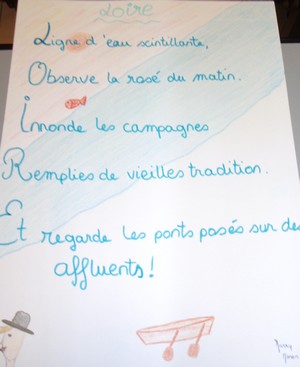 Loire
Ligne d'eau scintillante,
Observe la rosé du matin.
Inonde les campagnes
Remplies de vieilles tradition.
Et regarde les ponts posés sur des
affluents!